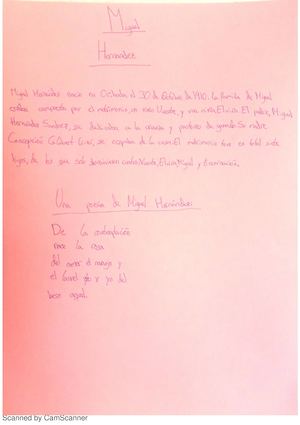 Miguel
Hernández
Miguel Hernández nació en Orihuela, el 30 de Octubre de 1910. La familia de Miguel
estaba compuesta por el matrimonio, un niño Vicente, y una niña Elvira. El padre, Miguel
Hernández Sánchez, se dedicaba a la crianza y pastoreo de ganado. Su madre
Concepción Gilabert Giner, se ocupaba de la casa. El matrimonio tuvo en total siete
hijos, de los que solo sobrevivieron cuatro Vicente, Elvira, Miguel y Encarnación.
Una poesía de Miguel Hernández:
De la contemplación
nace la rosa
del amor el naranjo y
el laurel: tú y yo del
beso aquel.
Scanned by CamScanner